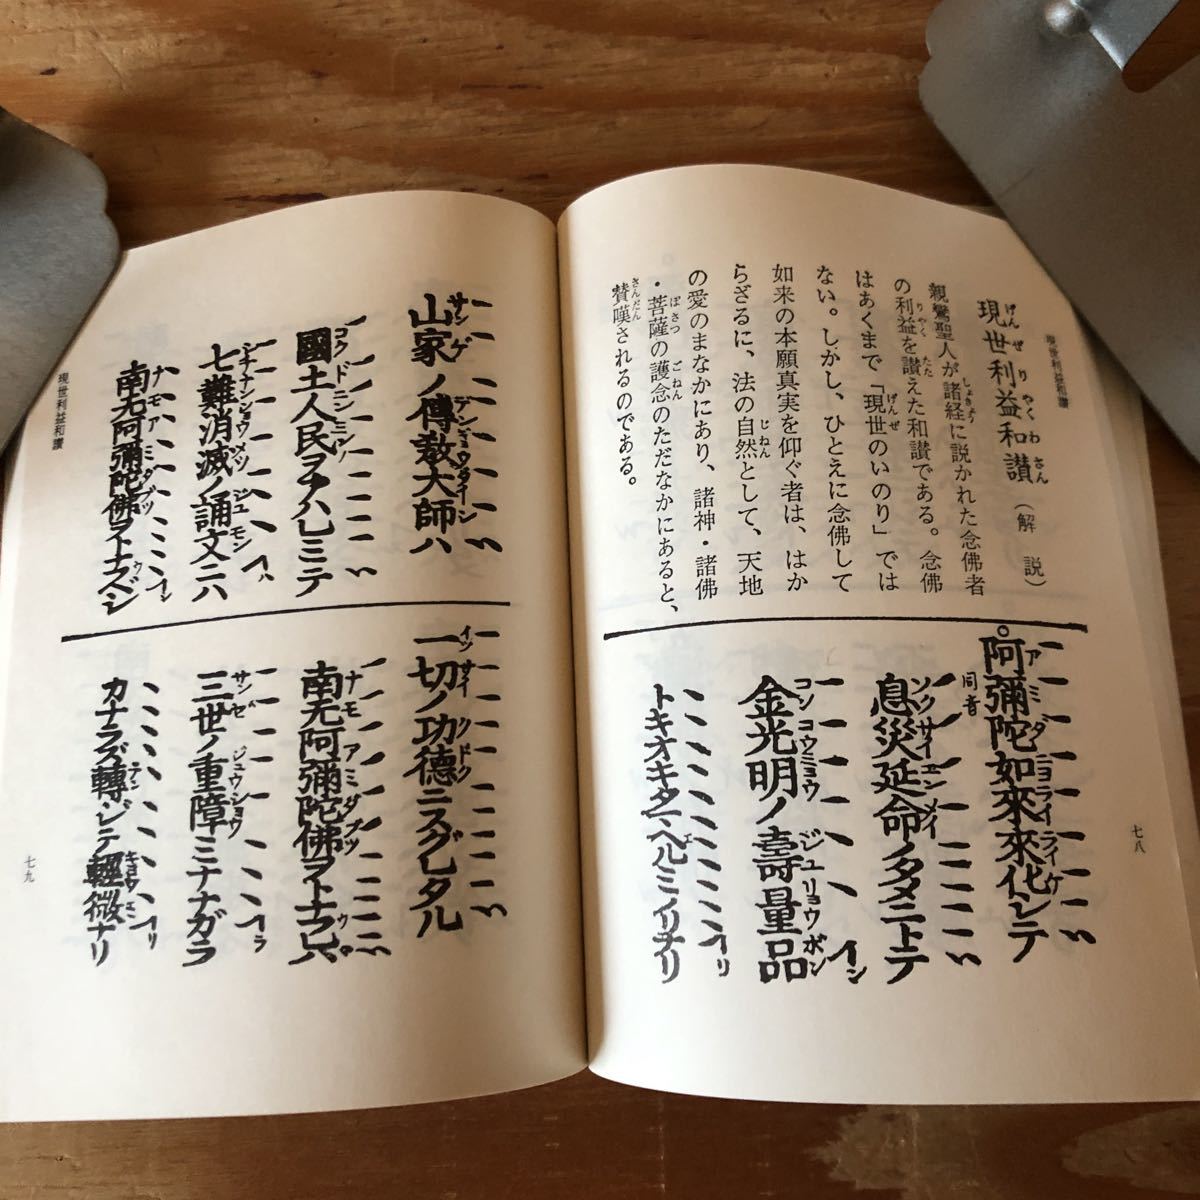 現世利益和讃
現世利益和讃（解説）
親鸞聖人が諸経に説かれた念佛者
の利益を讃えた和讃である。念佛
はあくまで「現世のいのり」では
ない。しかし、ひとえに念佛して
如来の本願真実を仰ぐ者は、はか
らざるに、法の自然として、天地
の愛のまなかにあり、諸神・諸佛
・菩薩の護念のただなかにあると、
賛嘆されるのである。
阿彌陀如來來化シテ
同音
息災延命ノタメニトテ
金光明ノ壽量品
トキオキタマヘルミノリナリ
七八
山家ノ傳敎大師ハ
國土人民ヲアハレミテ
七難消滅ノ誦文ニハ
南无阿彌陀佛ヲトナフベシ
一切ノ功德ニスグレタル
南无阿彌陀佛ヲトナフレバ
三世ノ重障ミナナガラ
カナラズ轉ジテ輕微ナリ
現世利益和讃
七九